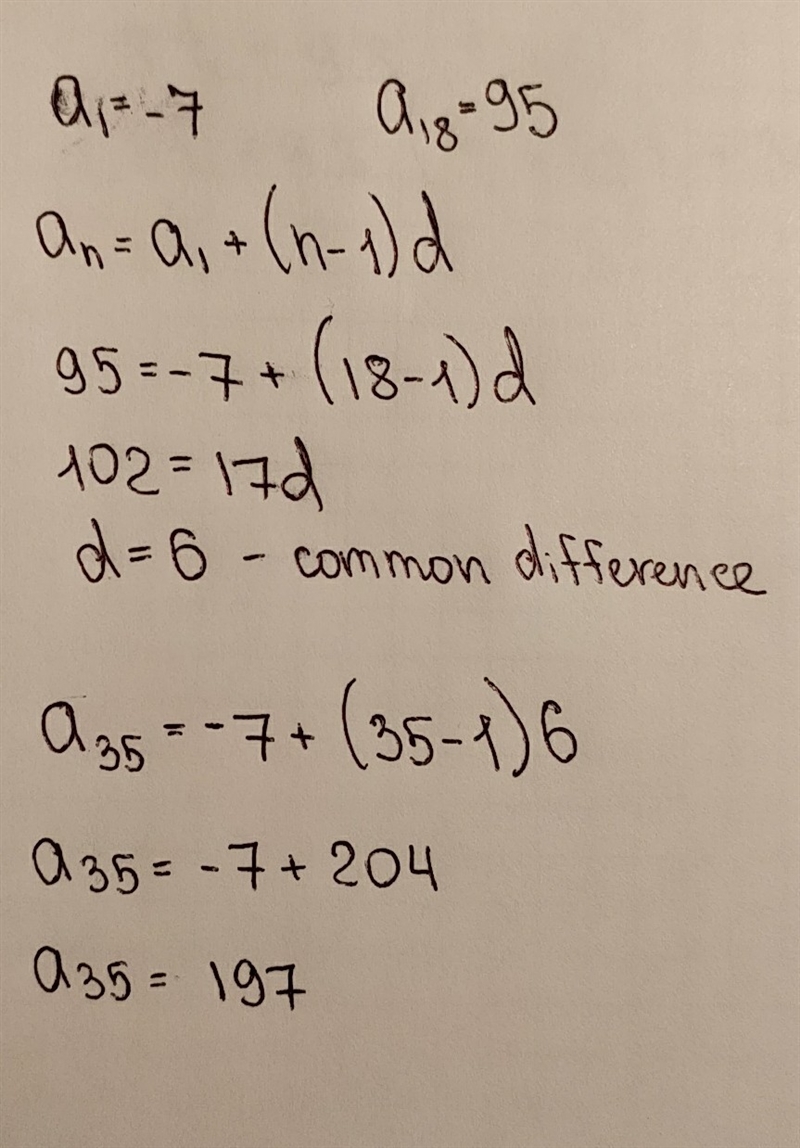 a₁=-7 a₁₈=95
aₙ=a₁+(n-1)d
95=-7+(18-1)d
102=17d
d=6 - common difference
a₃₅=-7+(35-1)6
a₃₅=-7+204
a₃₅= 197